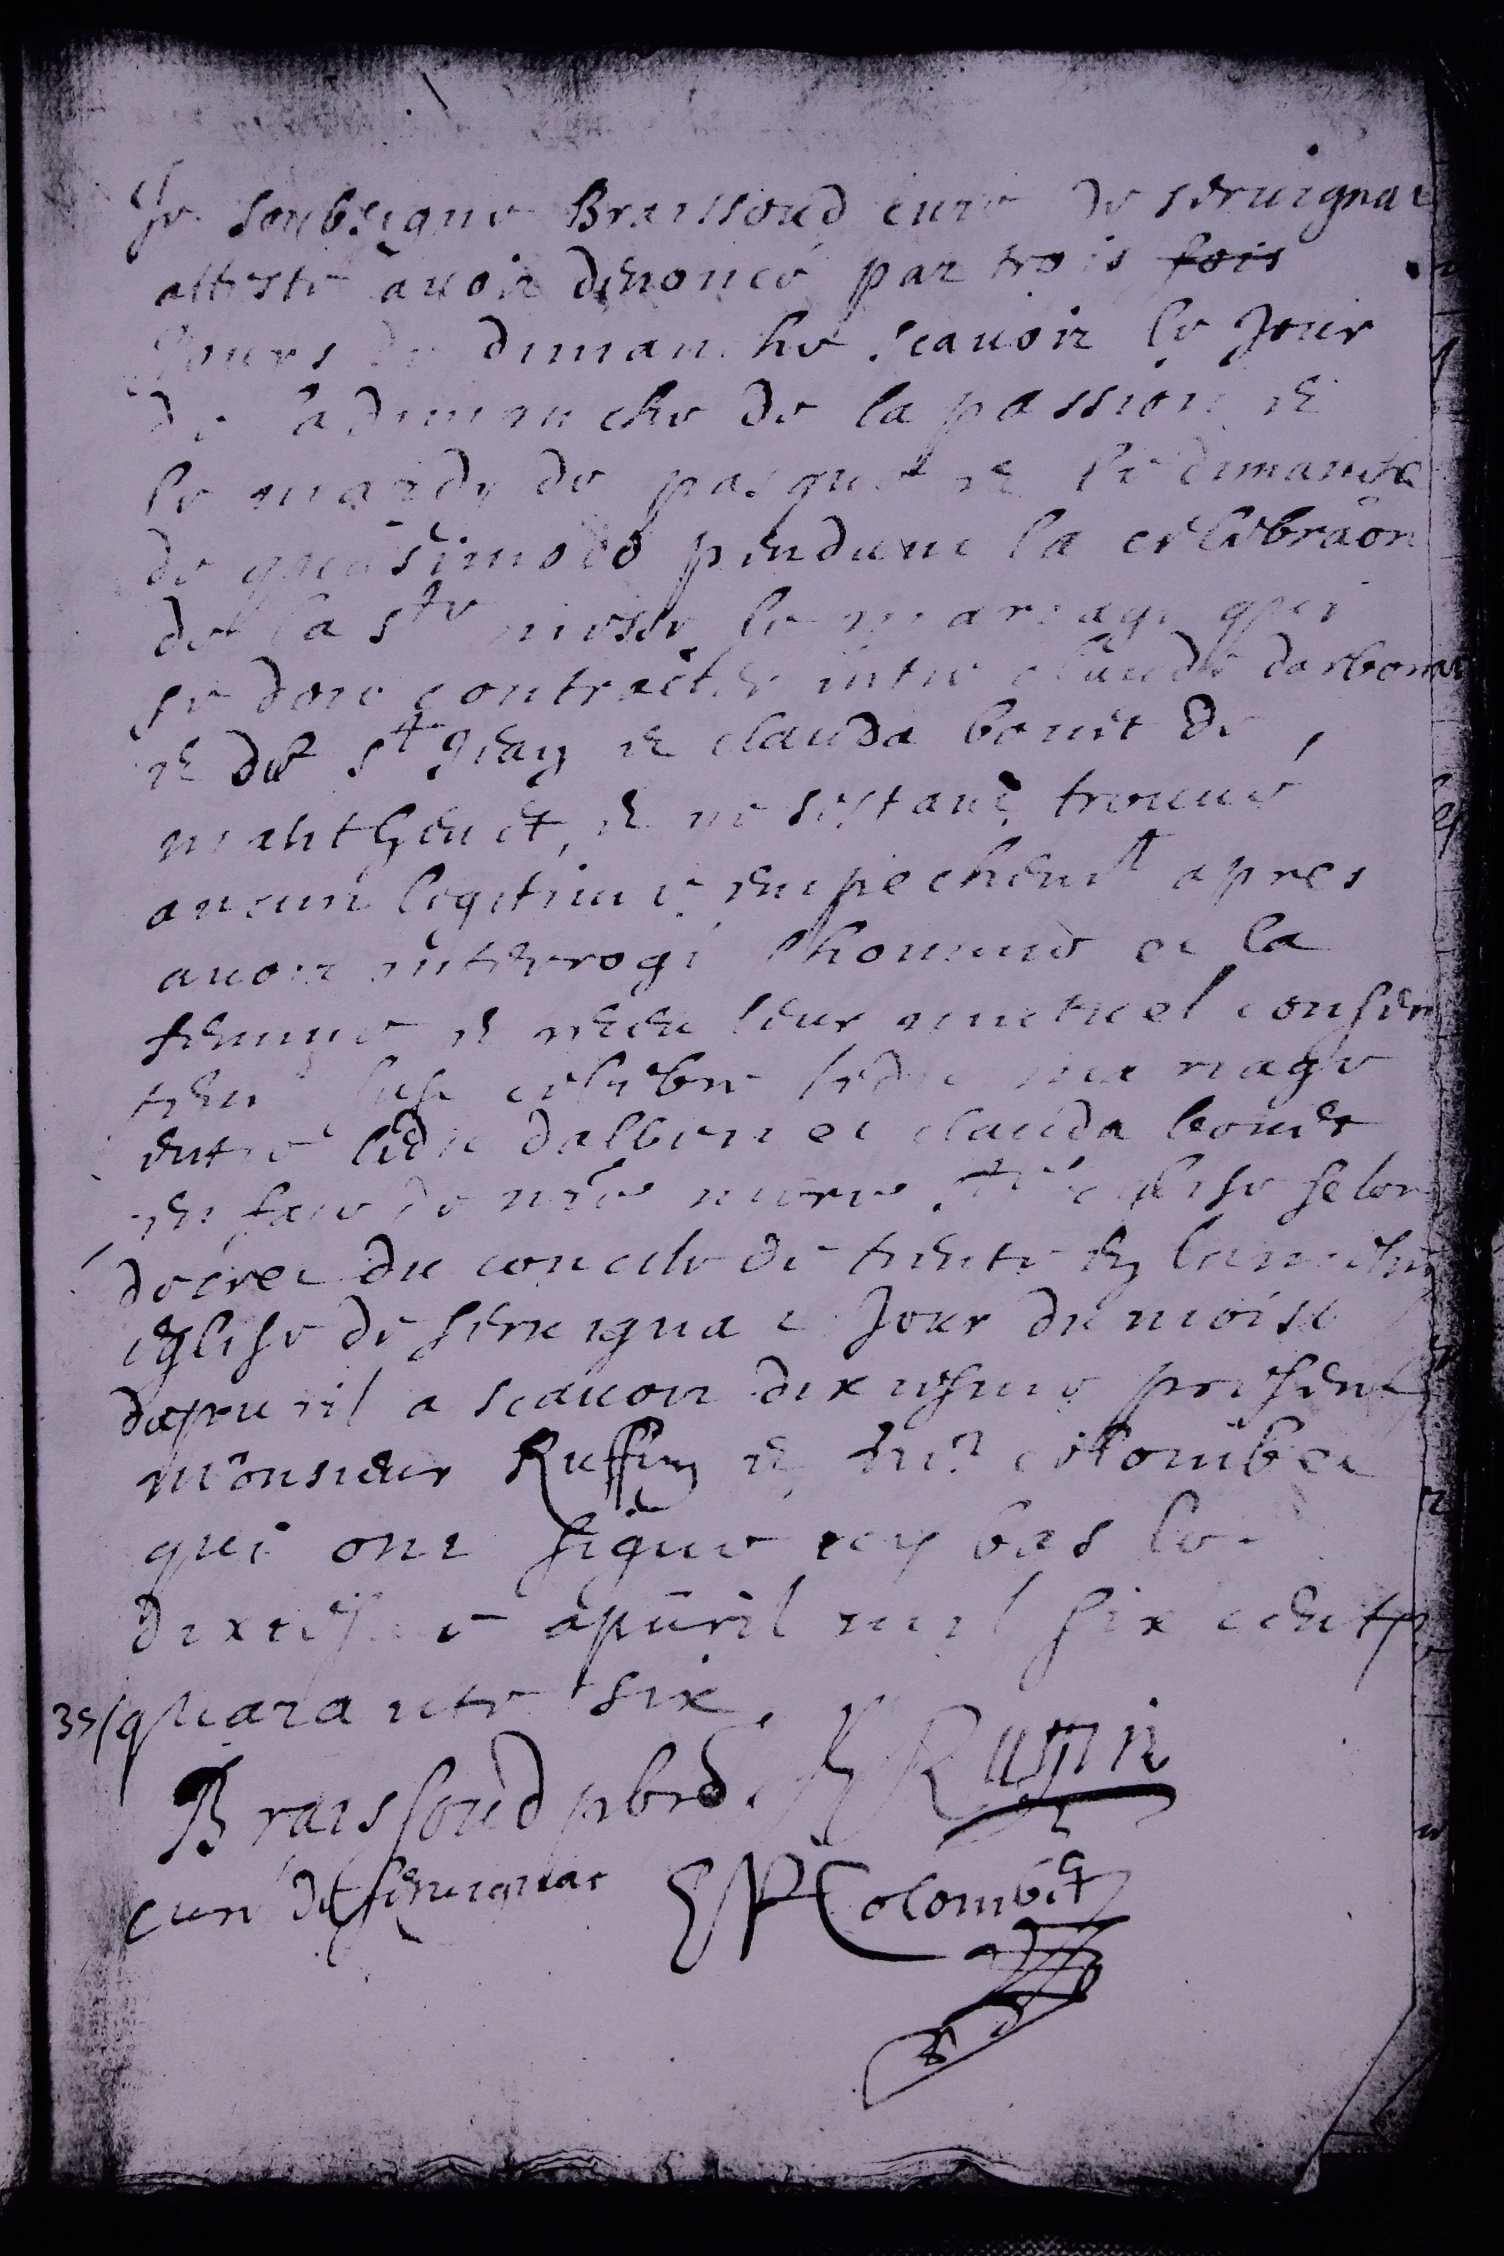 Je soubsigne Braissoud curé de seruignat
atteste auoir denoncé par trois fois
Jours de dimanche scauoir le Jour
de la dimanche de la passion et
le mardy de pasque et le dimanche
de quasimodo pendant la celebraon
de la ste messe le mariage qui
se doit contracter entre claude darbon
et de st Jean et clauda bouet de
manthenet, et ne sestant trouué
aucun legitime empechemt apres
auoir interrogé lhomme et la
femme et receu leur mutuel consen
tem celebre ledit mariage
entre ledit dalbon et clauda bouet
en face de nre mere ste eglise selon
decret du concile de trente en
eglise de seruigna Jour du mois
dapuril a scauoir dixiesme present
monsieur Ruffin et colombet
qui ont signé icy bas le
dixiesme apuril mil six cent
35 quarante six
Braissoud pbre Ruffin
curé de seruignat Colombet